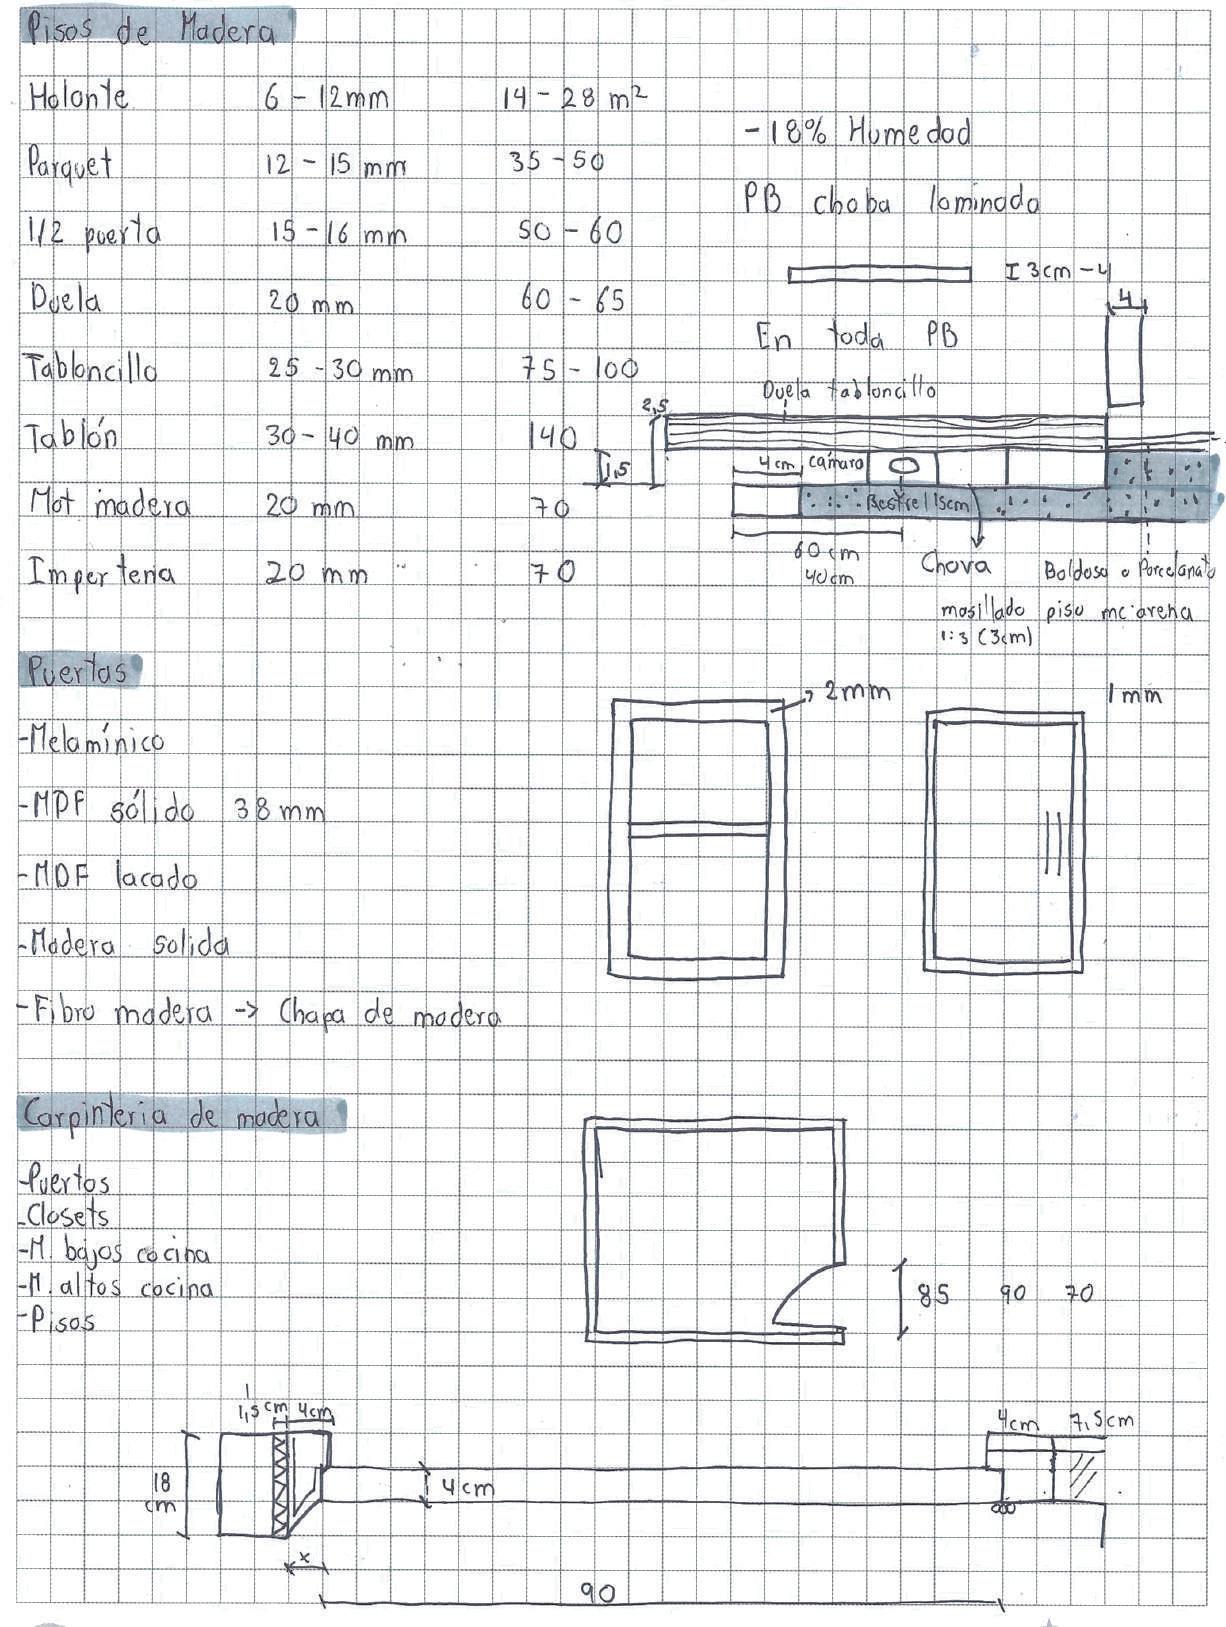 Pisos de Madera
Holante 6 - 12mm 14 - 28 m²
Parquet 12 - 15 mm 35 - 50
1/2 puerta 15 - 16 mm 50 - 60
Duela 20 mm 60 - 65
Tabloncillo 25 - 30 mm 75 - 100
Tablón 30 - 40 mm 140
Mat madera 20 mm 70
20 mm 70
- 18% Humedad
PB choba laminada
I 3cm - 4
4
En toda PB
Duela tabloncillo
2,5
1,5
4cm camara
15cm
60 cm
40cm
Chova
Baldosa o Porcelanato
masillado piso mc:arena
1:3 (3cm)
Puertas
- Melamínico
- MDF sólido 38 mm
- MDF lacado
- Madera solida
- Fibro madera -> Chapa de madera
2mm
1mm
Carpinteria de madera
- Puertas
- Closets
- M. bajos cocina
- M. altos cocina
- Pisos
85 90 70
1,5 cm 4cm
18
cm
4cm
4cm 7,5cm
x
90